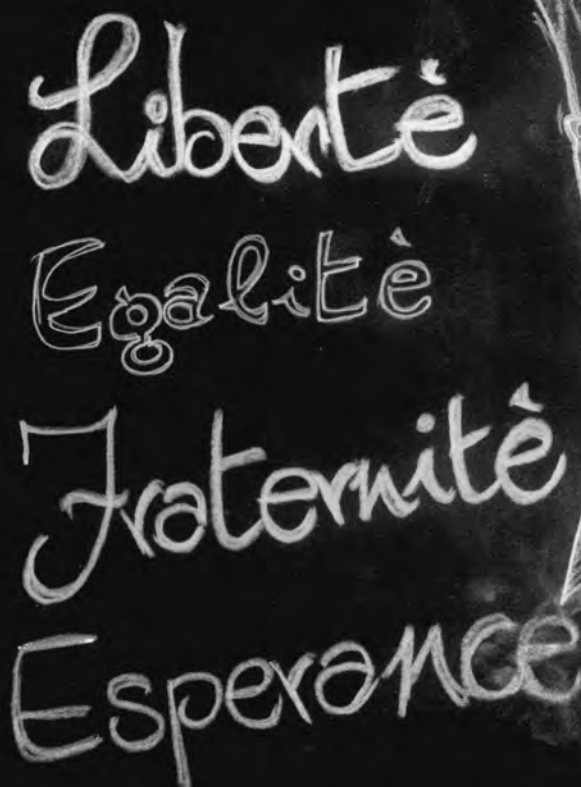 Libertè
Egalitè
Fraternitè
Esperance